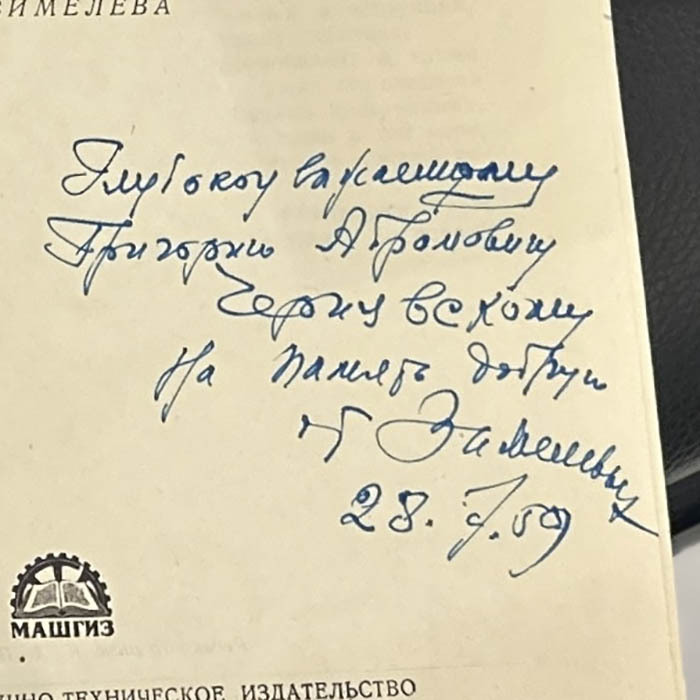 ЗИМЕЛЕВА
Глубокоуважаемому
Григорию Абрамовичу
Чернявскому
На память добрую
от Зимелевых
28.7.59
МАШГИЗ
ТЕХНИЧЕСКОЕ ИЗДАТЕЛЬСТВО